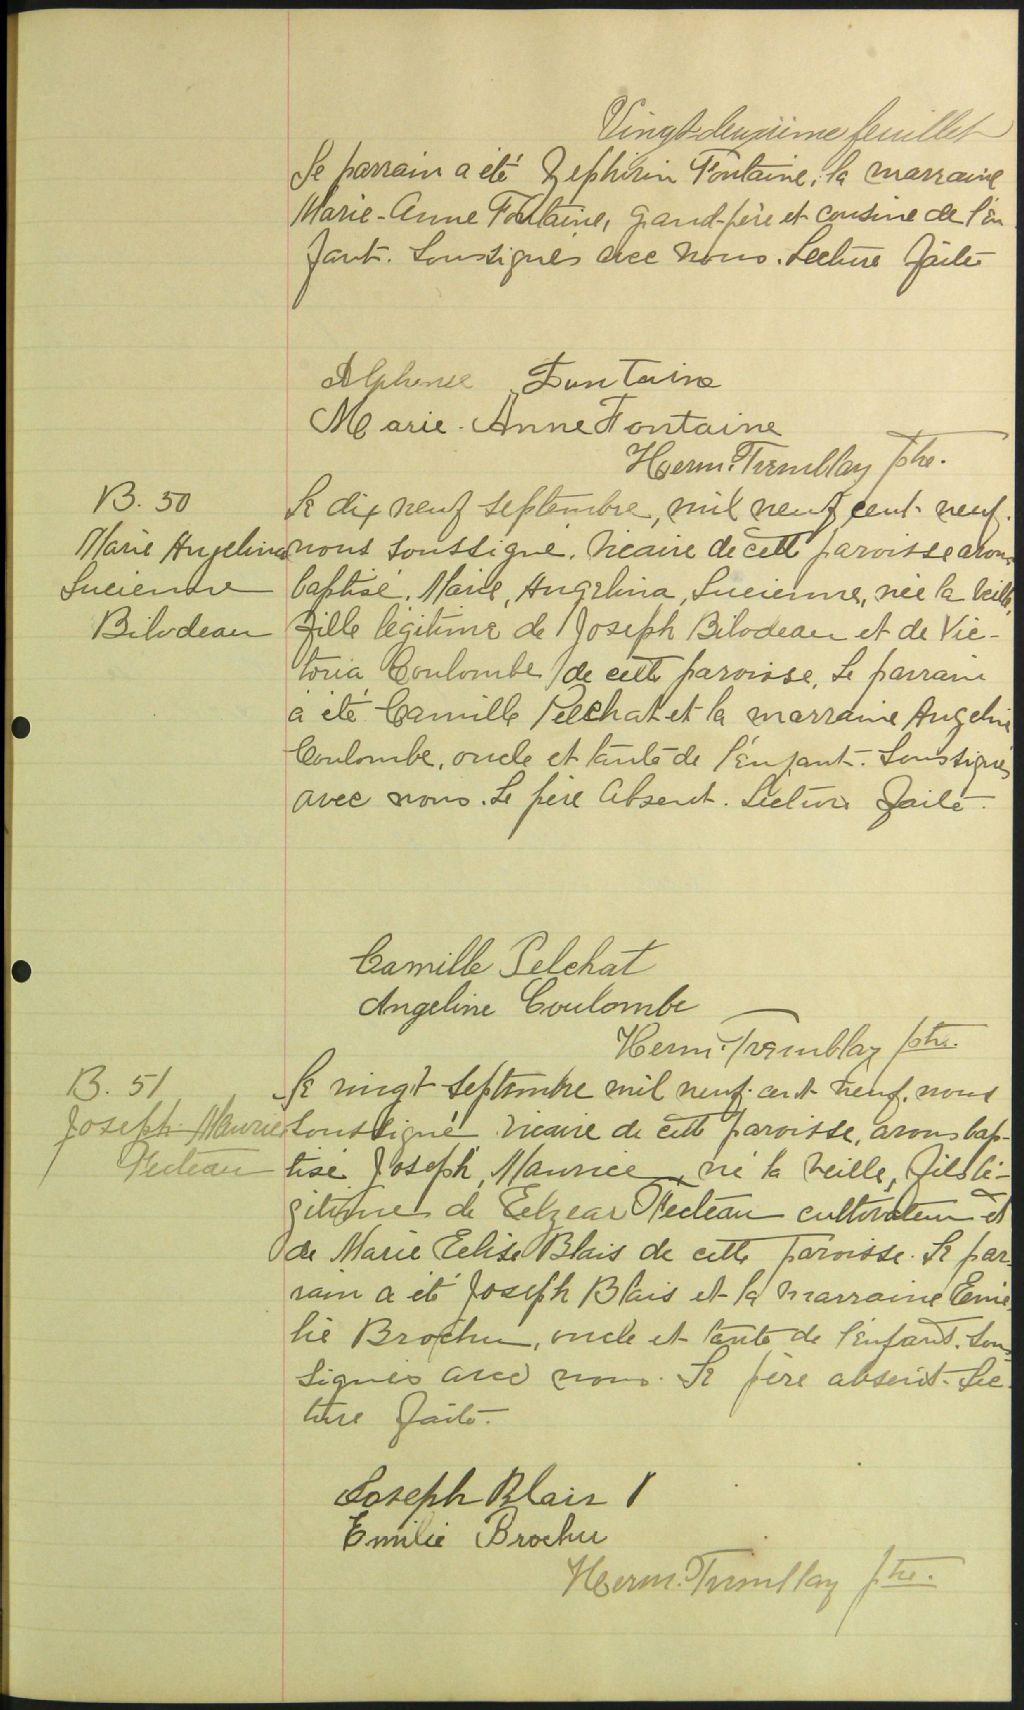 Vingt-deuxième feuillet
Le parrain a été Zephirin Fontaine, la marraine
Marie-Anne Fontaine, grand-père et cousine de l'en
fant. Soussignés avec nous. Lecture faite
Alphonse Fontaine
Marie-Anne Fontaine
Herm. Tremblay ptre.
B. 50
Marie Angelina
Lucienne
Bilodeau
Le dix neuf septembre, mil neuf cent neuf.
nous soussigné. Vicaire de cette paroisse avons
baptisé. Marie, Angelina, Lucienne, née la veille,
fille légitime de Joseph Bilodeau et de Vic-
toria Coulombe de cette paroisse. Le parrain
a été Camille Pelchat et la marraine Angeline
Coulombe, oncle et tante de l'enfant. Soussignés
avec nous. Le père absent. Lecture faite.
Camille Pelchat
Angeline Coulombe
Herm. Tremblay ptre.
B. 51
Joseph Maurice
Fecteau
Le vingt septembre mil neuf cent neuf. nous
soussigné vicaire de cette paroisse, avons bap-
tisé Joseph, Maurice, né la veille, fils lé-
gitime de Eelzear Fecteau cultivateur et
de Marie Eelise Blais de cette paroisse. Le par-
rain a été Joseph Blais et la marraine Emi
lie Brochu, oncle et tante de l'enfant. Sous
signés avec nous. Le père absent. Lec-
ture faite.
Joseph Blais
Emilie Brochu
Herm. Tremblay ptre.